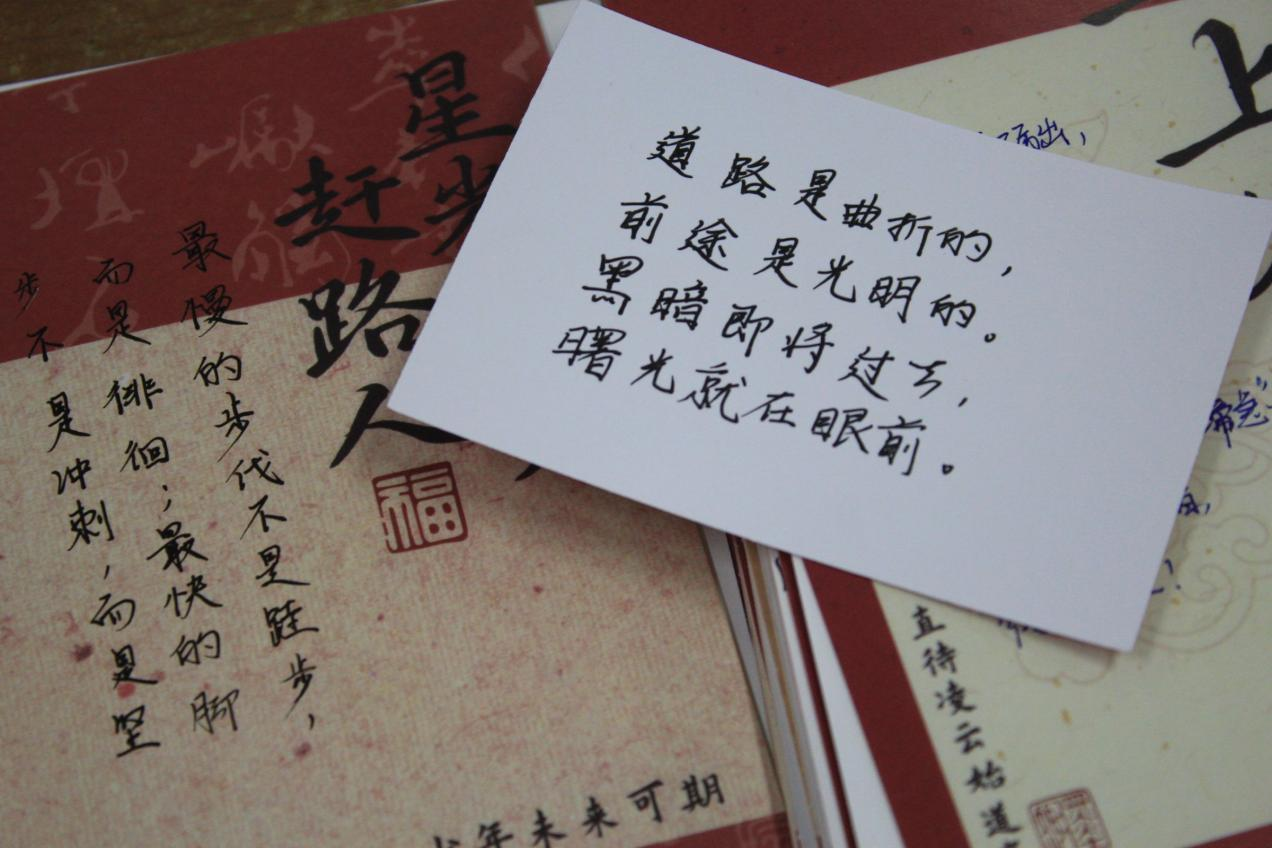 道路是曲折的，
前途是光明的。
黑暗即将过去，
曙光就在眼前。
星光
赶路人
最慢的步伐不是跬步，
而是徘徊；最快的脚
步不是冲刺，而是坚
福
年未来可期
上
出，
直待凌云始道